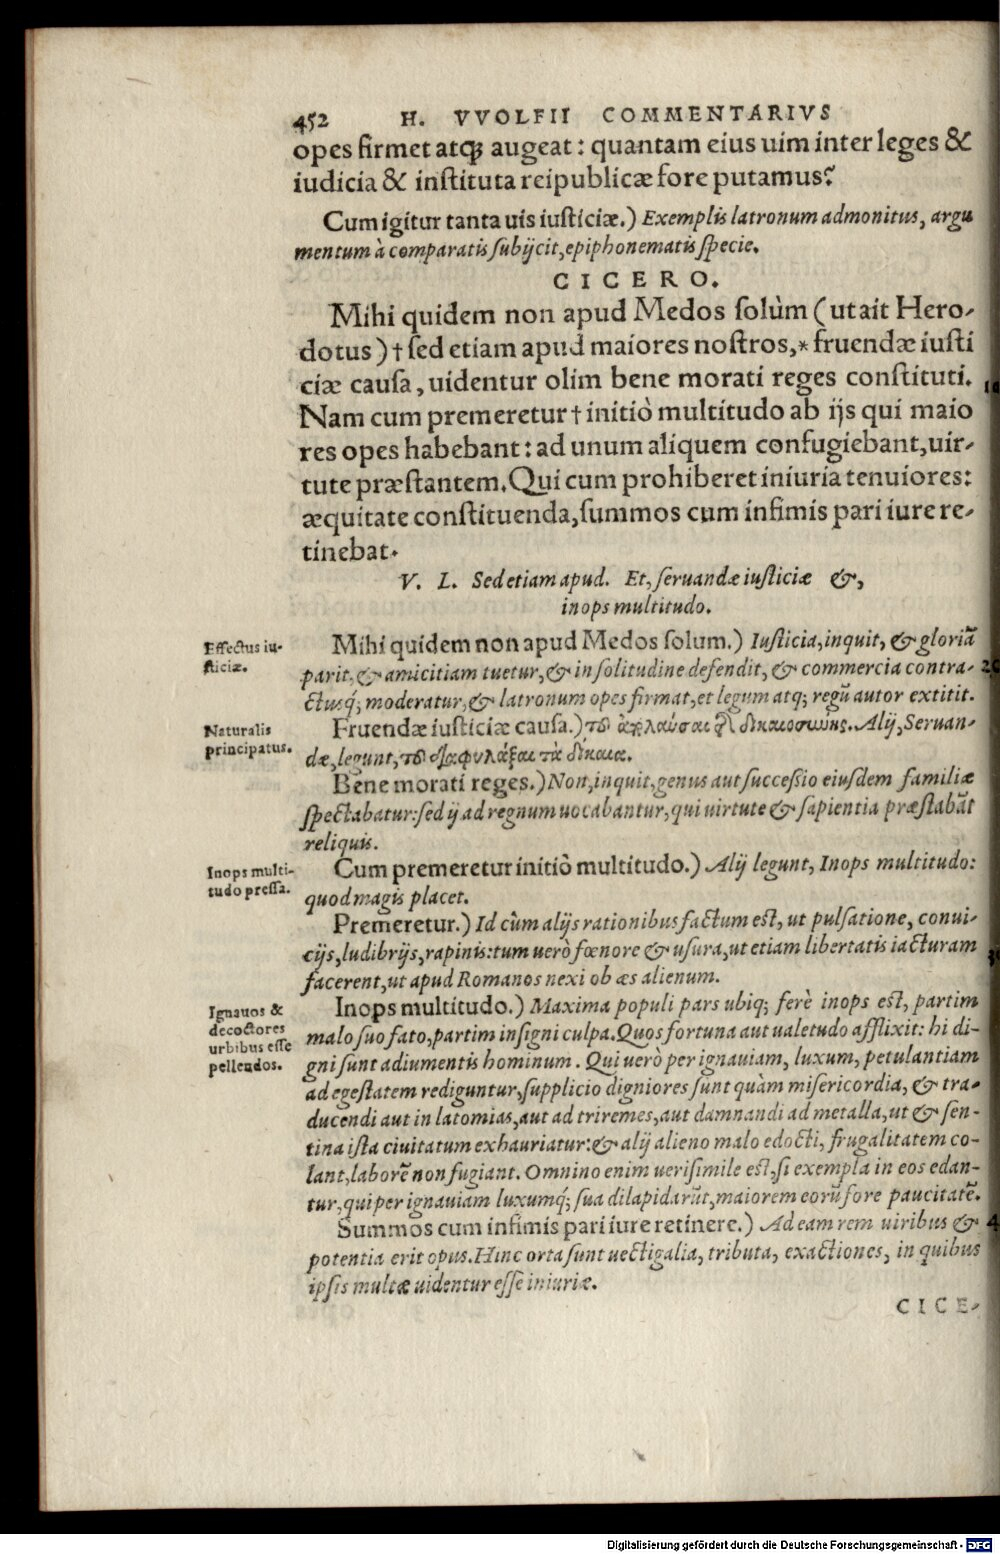 452 H. VVOLFII COMMENTARIVS
opes firmet atq; augeat: quantam eius uim inter leges &
iudicia & instituta reipublicæ fore putamus?
Cum igitur tanta uis iusticiæ.) Exemplis latronum admonitus, argu
mentum à comparatis subijcit, epiphonematis specie.
CICERO.
Mihi quidem non apud Medos solùm (ut ait Hero-
dotus) † sed etiam apud maiores nostros, * fruendæ iusti
ciæ causa, uidentur olim bene morati reges constituti.
Nam cum premeretur † initiò multitudo ab ijs qui maio
res opes habebant: ad unum aliquem confugiebant, uir-
tute præstantem. Qui cum prohiberet iniuria tenuiores:
æquitate constituenda, summos cum infimis pari iure re-
tinebat.
V. L. Sed etiam apud. Et, seruandæ iusticiæ &,
inops multitudo.
Effectus iu-
sticiæ.
Mihi quidem non apud Medos solum.) Iusticia, inquit, & gloriā
parit, & amicitiam tuetur, & in solitudine defendit, & commercia contra-
ctusq́; moderatur, & latronum opes firmat, et legum atq; regū autor extitit.
Naturalis
principatus.
Fruendæ iusticiæ causa.) τοῦ ἀπολαῦσαι τῆς δικαιοσύνης. Alij, Seruan-
dæ, legunt, τοῦ διαφυλάξαι τὰ δίκαια.
Bene morati reges.) Non, inquit, genus aut successio eiusdem familiæ
spectabatur: sed ij ad regnum uocabantur, qui uirtute & sapientia præstabāt
reliquis.
Inops multi-
tudo pressa.
Cum premeretur initiò multitudo.) Alij legunt, Inops multitudo:
quod magis placet.
Premeretur.) Id cùm alijs rationibus factum est, ut pulsatione, conui-
cijs, ludibrijs, rapinis: tum uerò fœnore & usura, ut etiam libertatis iacturam
facerent, ut apud Romanos nexi ob æs alienum.
Ignauos &
decoctores
urbibus esse
pellendos.
Inops multitudo.) Maxima populi pars ubiq; ferè inops est, partim
malo suo fato, partim insigni culpa. Quos fortuna aut ualetudo afflixit: hi di-
gni sunt adiumentis hominum. Qui uerò per ignauiam, luxum, petulantiam
ad egestatem rediguntur, supplicio digniores sunt quàm misericordia, & tra-
ducendi aut in latomias, aut ad triremes, aut damnandi ad metalla, ut & sen-
tina ista ciuitatum exhauriatur: & alij alieno malo edocti, frugalitatem co-
lant, laborē non fugiant. Omnino enim uerisimile est, si exempla in eos edan-
tur, qui per ignauiam luxumq́; sua dilapidarūt, maiorem eorū fore paucitatē.
Summos cum infimis pari iure retinere.) Ad eam rem uiribus &
potentia erit opus. Hinc orta sunt uectigalia, tributa, exactiones, in quibus
ipsis multæ uidentur esse iniuriæ.
CICE-
Digitalisierung gefördert durch die Deutsche Forschungsgemeinschaft - DFG